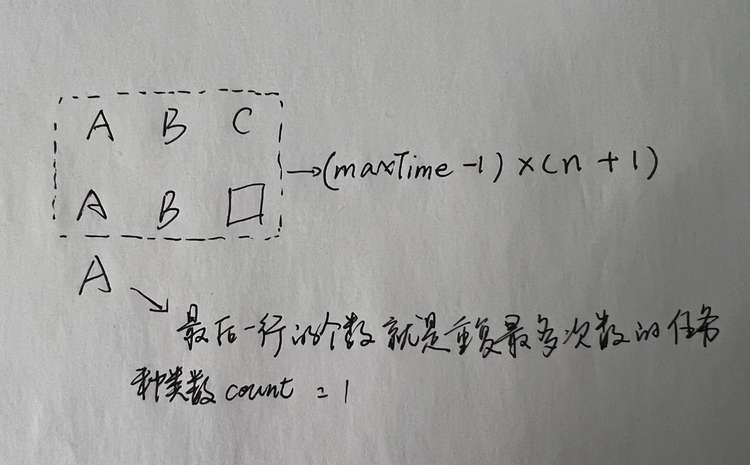 A B C
→(maxTime -1) ×(n +1)
A B □
A
最后一行的个数就是重复最多次数的任务
种类数 count = 1